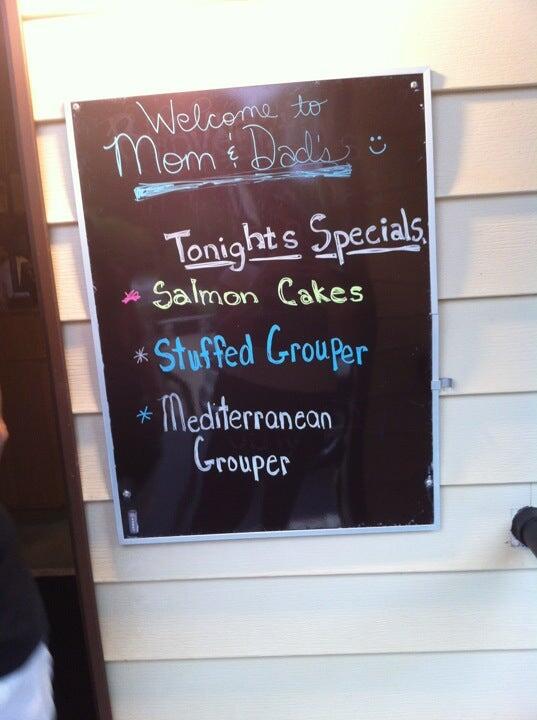 Welcome to
Mom & Dad's
Tonights Specials.
* Salmon Cakes
* Stuffed Grouper
* Mediterranean
Grouper